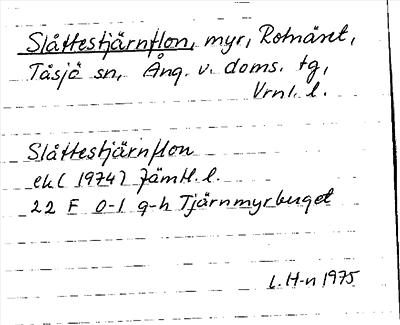 Slåttestjärnflon, myr, Rotnäset,
Tåsjö sn, Ång. v. doms. tg,
Vrnl. l.
Slåttestjärnflon
ek( 1974) Jämtl. l.
22 F 0-1 g-h Tjärnmyrberget
L. H-n 1975